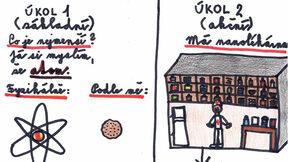 ÚKOL 1
(základní)
Co je nejmenší?
Já si myslím,
že atom.
Fyzikálně:
Podle mě:
ÚKOL 2
(akční)
Máš nanolékárnu